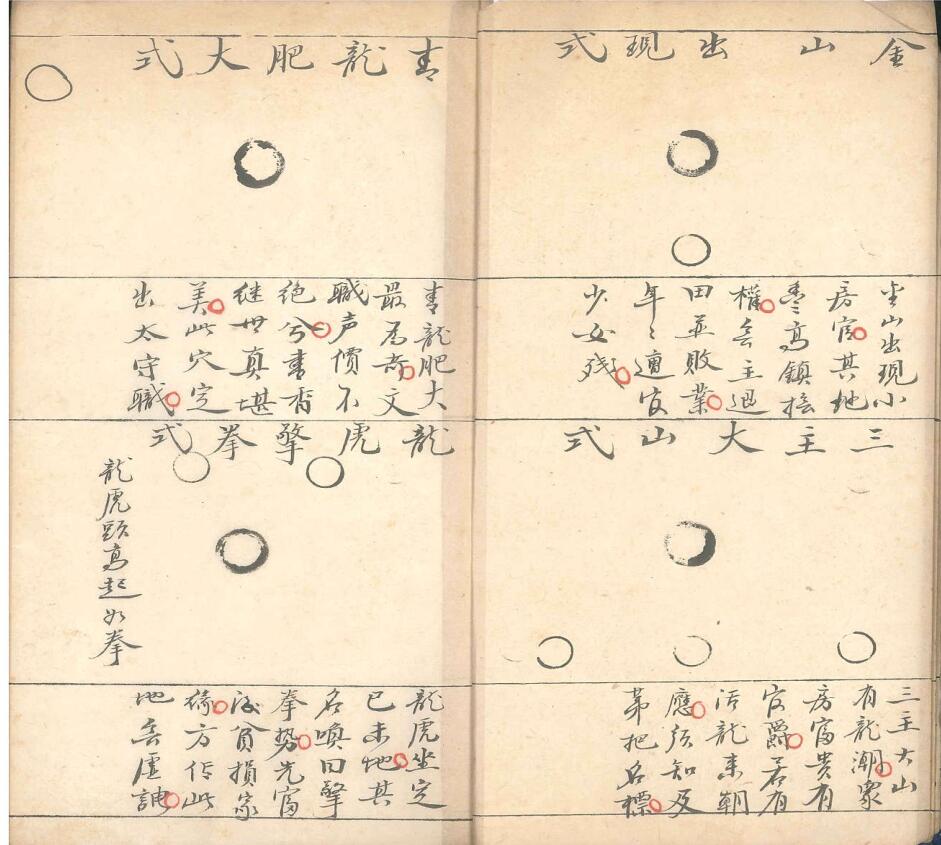 金山出現式
坐山出現小
房官其地
高鎮
權
田並敗業
年〻遭官
少女殘
三主大山式
三主大山
有龍潮眾
房富貴有
官爵若有
活龍來朝
應須知及
第把名標
青龍肥大式
青龍肥大
最為奇文
職声價不
絕兮書香
继世真堪
美此穴定
出太守職
龍虎擎拳式
龍虎頭高起如拳
龍虎坐定
已未地其
名喚曰擎
拳勢先富
後貧損家
緣方作此
地無虛